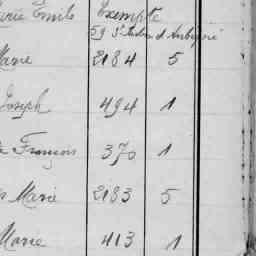 Marie Emile Exempté
59 St Aubin d'Aubigné
Marie 2184 5
Joseph 494 1
François 370 1
Marie 2183 5
Marie 413 1